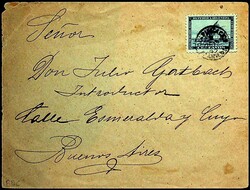 Señor
Don Julio
Introductor
Calle Esmeralda y Cuyo
Buenos Aires